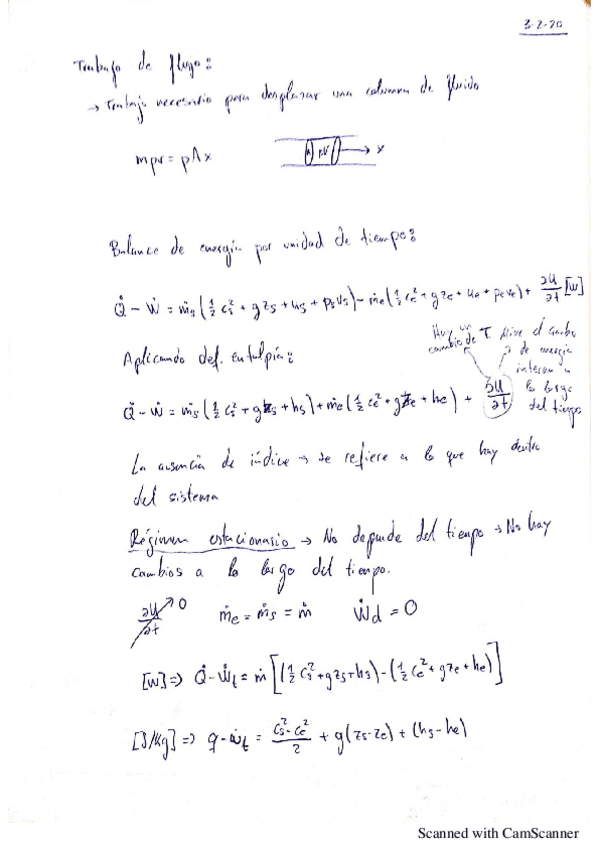 3-2-20
Trabajo de flujo:
→ Trabajo necesario para desplazar una columna de fluido
mpv = pAx
pV → x
Balance de energía por unidad de tiempo:
Q̇ - Ẇ = ṁs (½ cs² + g zs + us + ps vs) - ṁe (½ ce² + g ze + ue + pe ve) + ∂U/∂t [W]
Hay un cambio de T. Mide el cambio de energía interna a lo largo del tiempo
Aplicando def. entalpía:
Q̇ - Ẇ = ṁs (½ cs² + g zs + hs) + ṁe (½ ce² + g ze + he) + ∂U/∂t
La ausencia de índice → se refiere a lo que hay dentro
del sistema
Régimen estacionario → No depende del tiempo → No hay
cambios a lo largo del tiempo.
∂U/∂t → 0 ṁe = ṁs = ṁ Ẇd = 0
[W] => Q̇ - Ẇt = ṁ [(½ cs² + g zs + hs) - (½ ce² + g ze + he)]
[J/kg] => q - ẇt = (cs² - ce²)/2 + g(zs - ze) + (hs - he)
Scanned with CamScanner